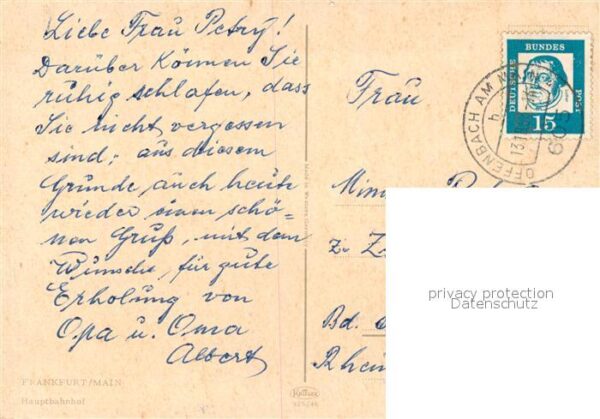 Liebe Frau Petry!
Darüber können Sie
ruhig schlafen, dass
Sie nicht vergessen
sind; aus diesem
Grunde auch heute
wieder einen schö=
nen Gruß, mit dem
Wunsche, für gute
Erholung von
Opa u. Oma
Albert
FRANKFURT/MAIN
Hauptbahnhof
Frau
zu
Bd.
Rhein
DEUTSCHE
BUNDES
POST
15
OFFENBACH AM
privacy protection
Datenschutz